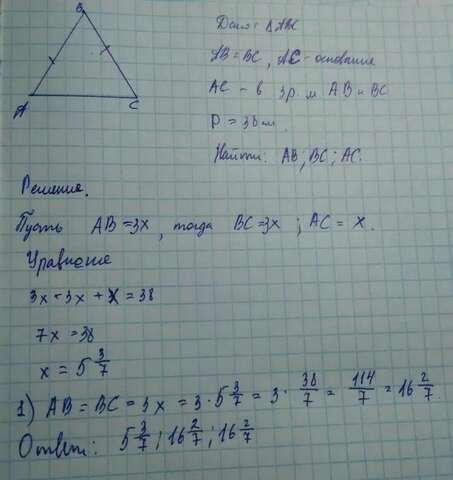 B
A
C
Дано: Δ ABC
AB = BC, AC - основание
AC - в 3 р. м AB и BC
P = 38 см.
Найти: AB; BC; AC.
Решение.
Пусть AB = 3x, тогда BC = 3x ; AC = x.
Уравнение
3x + 3x + x = 38
7x = 38
x = 5 3/7
1) AB = BC = 3x = 3 · 5 3/7 = 3 · 38/7 = 114/7 = 16 2/7
Ответ: 5 3/7 ; 16 2/7 ; 16 2/7